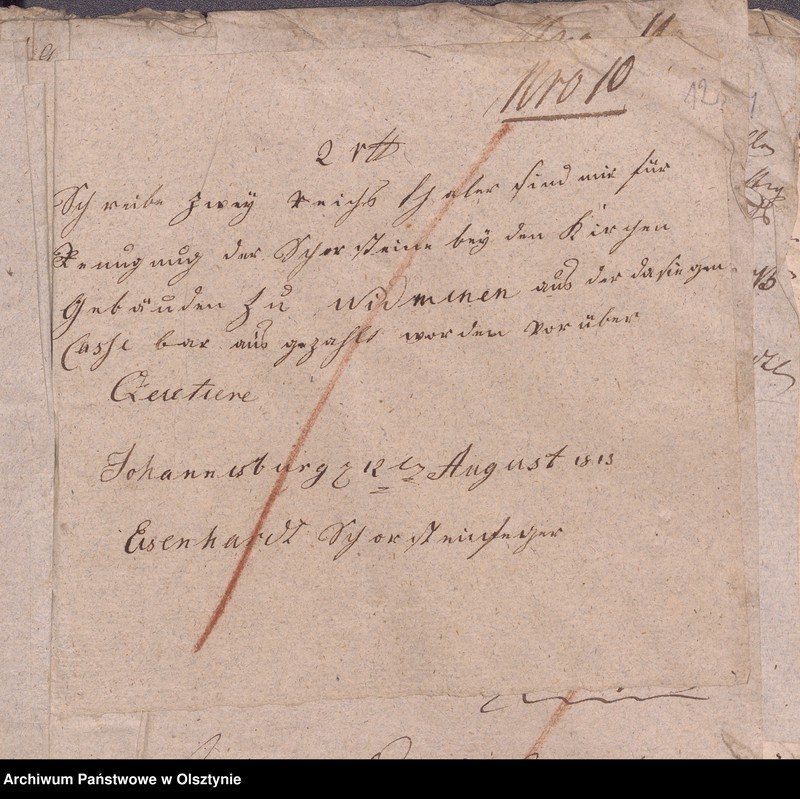 Nro 10
42
2 rtt
Schreibe zwey Reichs thaler sind mir für
Reinugnug der Schorsteine bey den Kirchen
Gebäuden zu Widminen aus der dasiegen
Casse bar aus gezahlt worden vorüber
Johannisburg 12 August 1813
Eisenhardt Schorsteinfeger
Archiwum Państwowe w Olsztynie